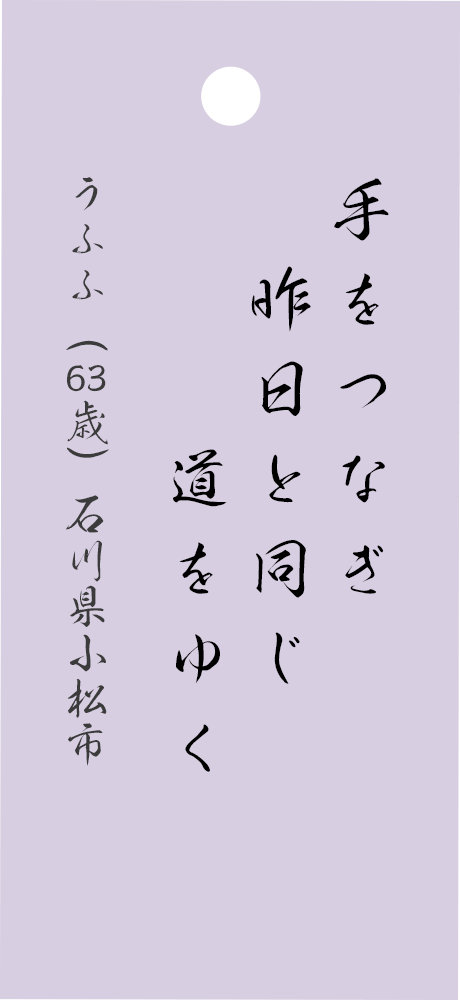 手をつなぎ
昨日と同じ
道をゆく
うふふ（63歳）石川県小松市